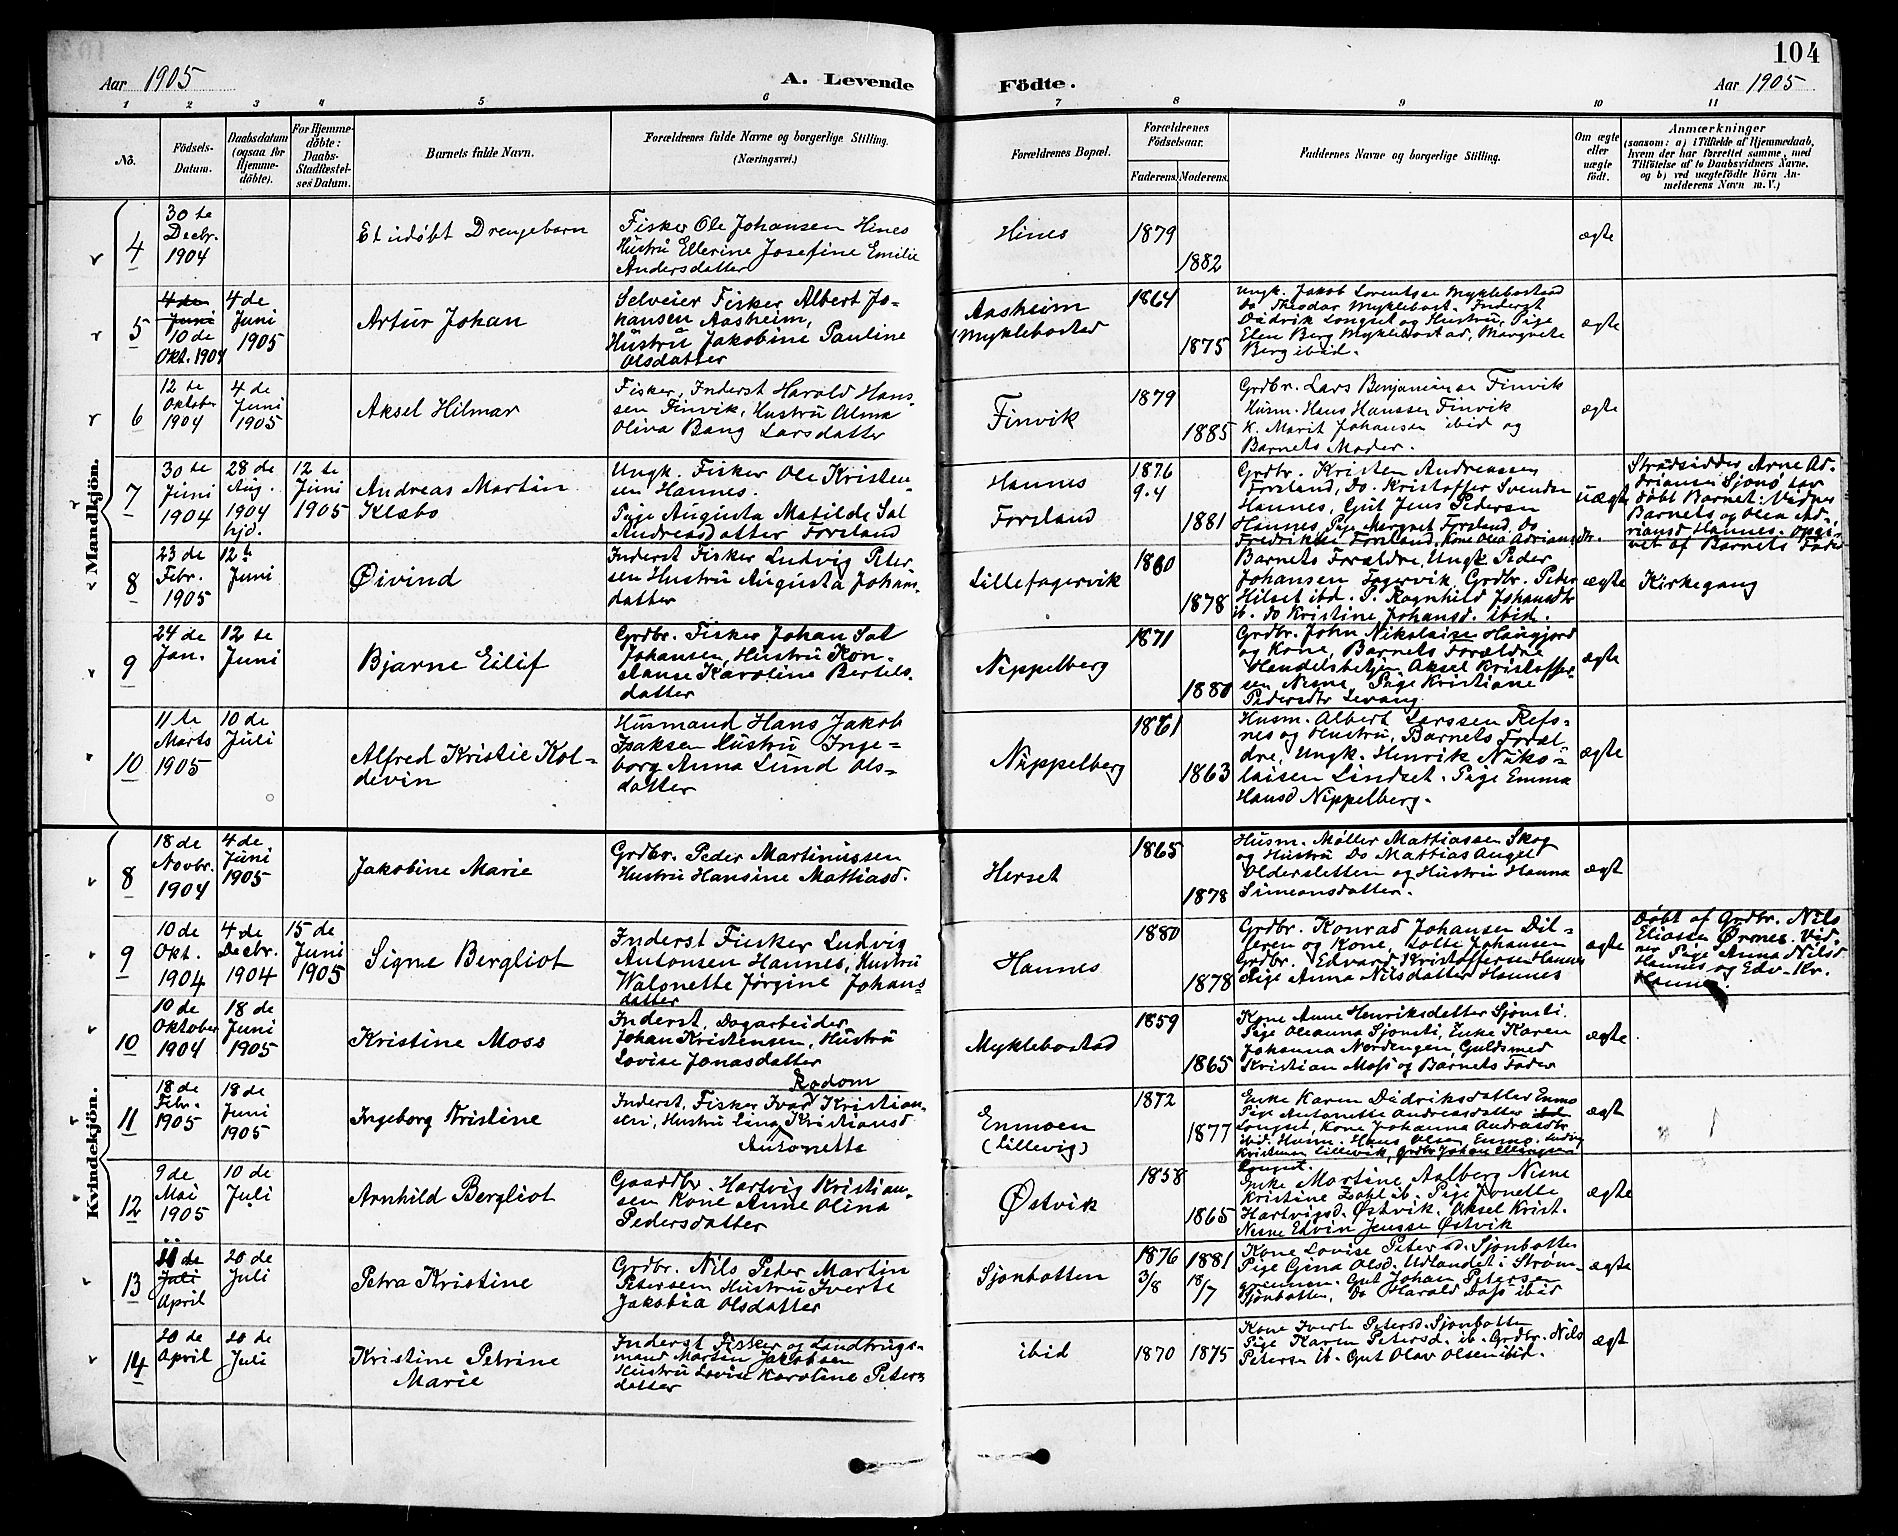 104
Aar 1905
A. Levende
Födte.
Aar 1905
1 2 3 4 5 6 7 8 9 10 11
No.
Födsels-
Datum.
Daabsdatum
(ogsaa for
Hjemme-
döbte).
For Hjemme-
döbte:
Daabs-
Stadfæstel-
ses Datum.
Barnets fulde Navn.
Forældrenes fulde Navne og borgerlige Stilling.
(Næringsvei.)
Forældrenes Bopæl.
Forældrenes
Födselsaar.
Faderens. Moderens.
Faddernes Navne og borgerlige Stilling.
Om ægte
eller
uægte
födt.
Anmærkninger
(saasom: a) i Tilfælde af Hjemmedaab,
hvem der har forrettet samme, med
Tilföielse af to Daabsvidners Navne,
og b) ved uægtefödte Börn An-
melderens Navn m. V.)
Mandkjön.
4
30 te
Decbr.
1904
Et udøbt Drengebarn
Fisker Ole Johansen Hines
Hustru Ellerine Josefine Emilie
Andersdatter
Hines
1879
1882
ægte
5
4 de
Juni
10 de
Okt. 1904
4 de
Juni
1905
Artur Johan
Selveier Fisker Albert Jo-
hansen Aasheim,
Hustru Jakobine Pauline
Olsdatter
Aasheim
Myklebostad
1864
1875
Ungk. Jakob Lorentsse Myklebostad
Do Theodor Myklebost. Inderst
Didrik Longset og Hustru, Pige
Elen Berg Myklebostad, Margrete
Berg ibid.
ægte
6
12 te
Oktober
1904
4 de
Juni
1905
Aksel Hilmar
Fisker, Inderst Harald Hans-
sen Finvik, Hustru Alma
Oliva Bang Larsdatter
Finvik
1879
1885
Grdbr. Lars Benjaminse Finvik
Husm. Hans Hanssen Finvik
K. Marit Johansen ibid og
Barnets Moder.
ægte
7
30 te
Juni
1904
28 de
Aug.
1904
hjd.
12 te
Juni
1905
Andreas Martin
Klæbo
Ungk. Fisker Ole Kristen-
sen Hannes.
Pige Augusta Matilde Sal
Andreasdatter Forsland
Hannes
Forsland
1876
9.4
1881
Grdbr. Kristen Andreassen
Forsland, Do. Kristoffer Svendsen
Hannes, Gut Jens Pedersen
Hannes, Pige Margret Forsland, Do
Fredrikke Forsland, Kone Olea Adriansdr.
uægte
Strødsidder Arne Ad-
riansen Sjonø har
døbt Barnet. Vidner
Barnets og Olea Ad-
riansd Hannes. Opgi-
vet af Barnets Fader
8
23 de
Febr.
1905
12 te
Juni
Øivind
Inderst Fisker Ludvig Peter-
sen Hustru Augusta Johans-
datter
Lillefagervik
1880
1878
Barnets Forældre, Ungk Peder
Johansen Fagervik, Grdbr. Peter
Hilset ibd. P. Ragnhild Johansdtr
ib. do Kristine Johansd. ibid.
ægte
Kirkegang
9
24 de
Jan.
12 te
Juni
Bjarne Eilif
Grdbr. Fisker Johan Sal
Johansen, Hustru Kon-
stanse Karoline Bertels-
datter
Nippelberg
1871
1880
Grdbr. John Nikolaise Haugjord
og Kone, Barnets Forældre
Handelsbetjen Aksel Kristoffer-
sen Nesne, Pige Kristiane
Pedersdtr Levang
ægte
10
11 te
Marts
1905
10 de
Juli
Alfred Kristie Kol-
devin
Husmand Hans Jakob
Isaksen Hustru Inge-
borg Anna Lund Ols-
datter
Nippelberg
1861
1863
Husm. Albert Larssen Refs-
nes og Hustru, Barnets Foræl-
dre, Ungk. Henrik Niko-
laisen Lindset. Pige Emma
Hansd Nippelberg.
ægte
Kvindekjön.
8
18 de
Novbr.
1904
4 de
Juni
1905
Jakobine Marie
Grdbr. Peder Martinussen
Hustru Hansine Mattiasd.
Herset
1865
1878
Husm. Møller Mattiassen Skog
og Hustru Do Mattias Angel
Oldersletten og Hustru Hanna
Simeonsdatter.
ægt
9
10 de
Okt.
1904
4 de
Decbr.
1904
15 de
Juni
1905
Signe Bergliot
Inderst Fisker Ludvig
Antonsen Hannes, Hustru
Walonette Jørgine Johans-
datter
Hannes
1880
1878
Grdbr. Konrad Johansen Dil-
jeren og Kone, Lotte Johansen
Grdbr. Edvard Kristoffersen Hannes
Pige Anna Nilsdatter Hannes
ægte
Døbt af Grdbr. Nils
Eliasse Ørnes. Vid-
ner Pige Anna Nilsd
Hannes og Edv. Kr.
Hannes.
10
10 de
Oktober
1904
18 de
Juni
1905
Kristine Moss
Inderst, Dagarbeider
Johan Kristensen, Hustru
Lovise Jonasdatter
Myklebostad
1859
1865
Kone Anne Henriksdatter Sjonsti
Pige Oleanna Sjonsti, Enke Karen
Johanna Nordengen, Guldsmed
Kristian Moss og Barnets Fader
ægte
11
18 de
Febr.
1905
18 de
Juni
1905
Ingeborg Kristine
Rodom
Inderst, Fisker Ivar Kristian-
sen, Hustru Lina Kristiansd
Antonette
Enmoen
(Lillevig)
1872
1877
Enke Karen Didriksdatter Enmo
Pige Antonette Andreasdatter ibid
Longset, Kone Johanna Andrasdtr
ibid. Husm. Hans Olsen, Enmo. Ludvig
Kristensen Lillevik, Grdbr Johan Ellingsen
Longset.
ægte
12
9 de
Mai
1905
10 de
Juli
Arnhild Bergliot
Gaardbr. Hartvig Kristian-
sen Kone Anne Olina
Pedersdatter
Østvik
1858
1865
Enke Martine Aalberg Nesne
Kristine Zahl ib. Pige Jonette
Hartvigsd. Østvik. Aksel Krist.
Nesne Edvin Jensse Østvik
ægte
13
Juli
April
20 de
Juli
Petra Kristine
Grdbr. Nils Peder Martin
Petersen Hustru Iverte
Jakobia Olsdatter
Sjonbotten
1876
3/8
1881
18/7
Kone Lovise Petersd. Sjonbotten
Pige Gina Olsd. Udlandet i Strøm-
grennen. Gut Johan Petersen
Sjonbotten, Do Harald Dass ibid
ægte
14
20 de
April
20 de
Juli
Kristine Petrine
Marie
Inderst Fisker og Landbrugs-
mand Martin Jakobsen
Hustru Lovise Karoline Peters-
datter
ibid
1870
1875
Kone Iverte Petersd. Sjonbotten
Pige Karen Petersd. ib. Grdbr. Nils
Petersen ib. Gut Olav Olsen ibid.
ægt